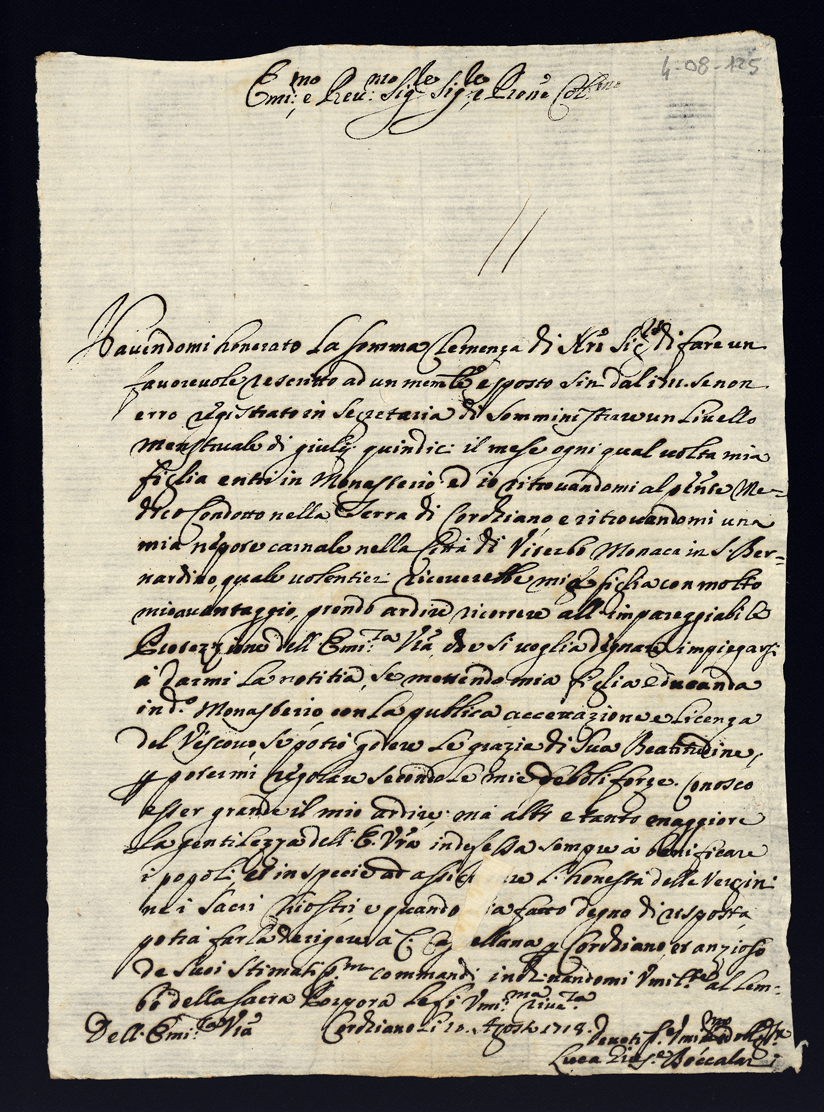 4-08-125
Emi:mo e Reu:mo Sigre Sigre e Prone Col:mo
Hauendomi honorato la somma Clemenza di Nro Sigre di fare un
fauoreuole rescritto ad un memle esposto sin dal se non
erro registrato in Segretaria di somministrare un Liuello
menstuale di giulij quindici il mese ogni qual uolta mia
figlia entri in Monasterio ed io ritrouandomi al pnte Me-
dico Condotto nella Terra di Corchiano e ritrouandomi una
mia nepote carnale nella Città di Viterbo Monaca in S. Ber=
nardino, quale uolentieri riceuerebbe mia figlia con molto
mio auantaggio, prendo ardire ricorrere all' impareggiabile
Protezzione dell' Emi:za Vra, che si uoglia degnare impiegarsi
à darmi la notitia, se mettendo mia figlia educanda
in do. Monasterio con la publica accettazione e licenza
del Vescouo, se potrò godere le grazie di Sua Beatitudine,
p potermi regolare secondo le mie deboli forze. Conosco
esser grande il mio ardire: ma altr e tanto maggiore
la gentilezza dell' E. Vra indefessa sempre à benificare
i popoli et in specie ad assicu re l'honestà delle Vergini
ne i Sacri Chiostri e quando ia fatto degno di risposta,
potrà farla derigere a C. Ca ellana p Corchiano, et anzioso
de suoi stimatissmi commandi inchinandomi Vmilte al lem-
bo della sacra Porpora le fò Vmi:ma riue:za
Dell' Emi:za Vra Corchiano li 10. Agosto 1718.
Deuotis. Vmi:mo et obblmo Sre
Luca Gius.e Boccalari